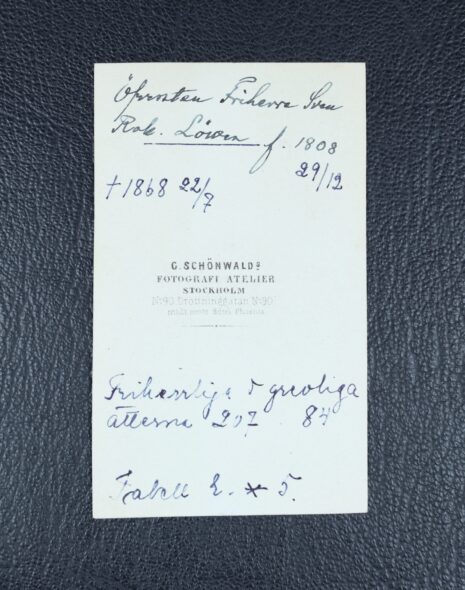 Öfversten Friherre Sven
Rob. Löwen f. 1808
29/12
† 1868 22/7
G. SCHÖNWALDS
FOTOGRAFI ATELIER
STOCKHOLM
No 90 Drottninggatan No 90
midt emot Hôtel Phoenix
Friherrliga & grevliga
ätterna 207 84
Tabell 2. * 5.